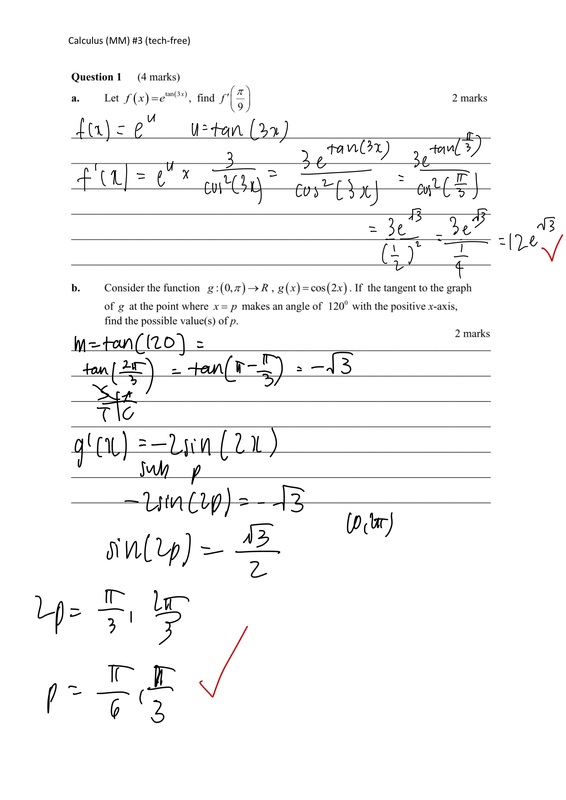 Calculus (MM) #3 (tech-free)
Question 1 (4 marks)
a. Let f(x)=e^{tan(3x)}, find f'(π/9) 2 marks
f(x) = e^u u=tan(3x)
f'(x) = e^u × 3/cos²(3x) = 3e^{tan(3x)}/cos²(3x) = 3e^{tan(π/3)}/cos²(π/3)
= 3e^{√3}/(1/2)² = 3e^{√3}/(1/4) = 12e^{√3}
b. Consider the function g:(0,π)→R, g(x)=cos(2x). If the tangent to the graph
of g at the point where x = p makes an angle of 120⁰ with the positive x-axis,
find the possible value(s) of p.
2 marks
m=tan(120) =
tan(2π/3) = tan(π-π/3) = -√3
S A
T C
g'(x) = -2sin(2x)
sub p
-2sin(2p) = -√3
(0,2π)
sin(2p) = √3/2
2p = π/3, 2π/3
p = π/6, π/3